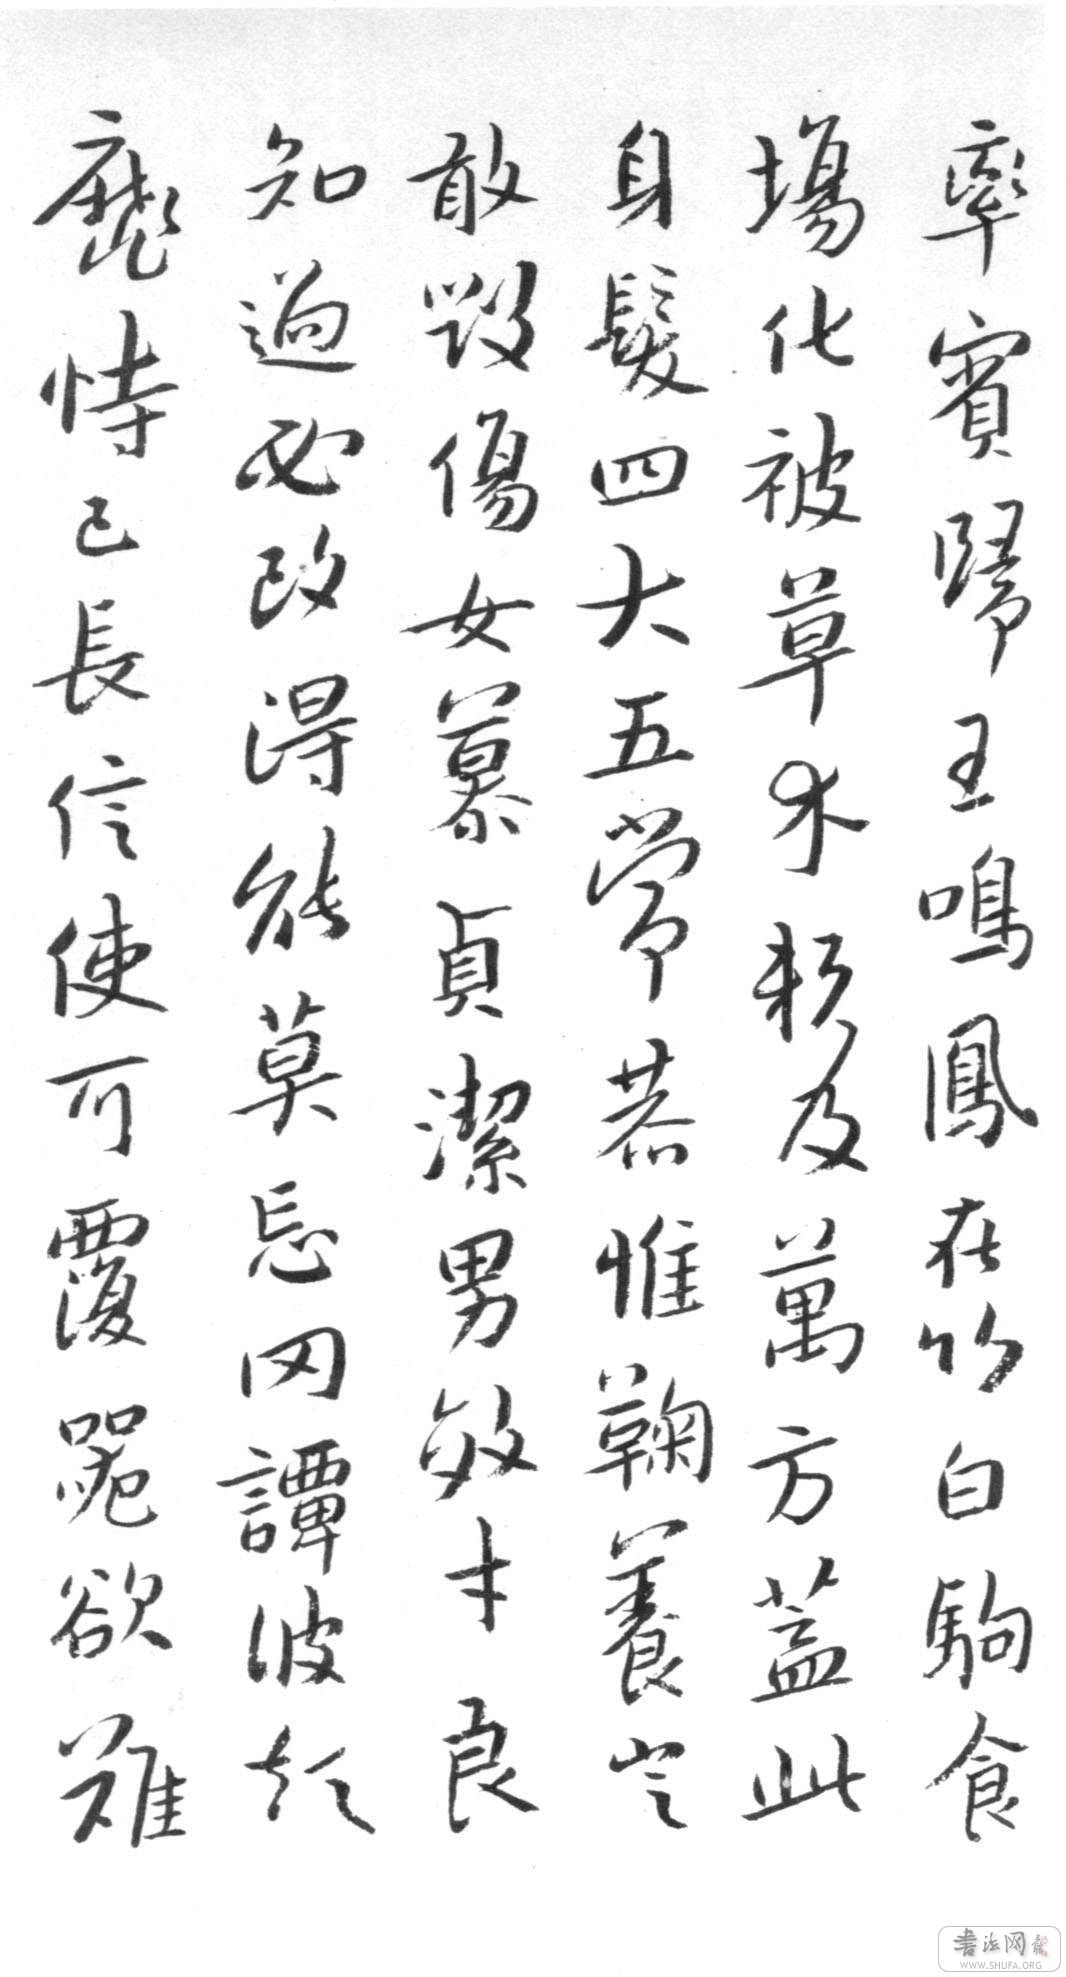 率賓歸王鳴鳳在竹白駒食
場化被草木賴及萬方蓋此
身髮四大五常恭惟鞠養豈
敢毀傷女慕貞潔男效才良
知過必改得能莫忘罔譚彼短
靡恃己長信使可覆器欲難
書法网
WWW.SHUFA.ORG